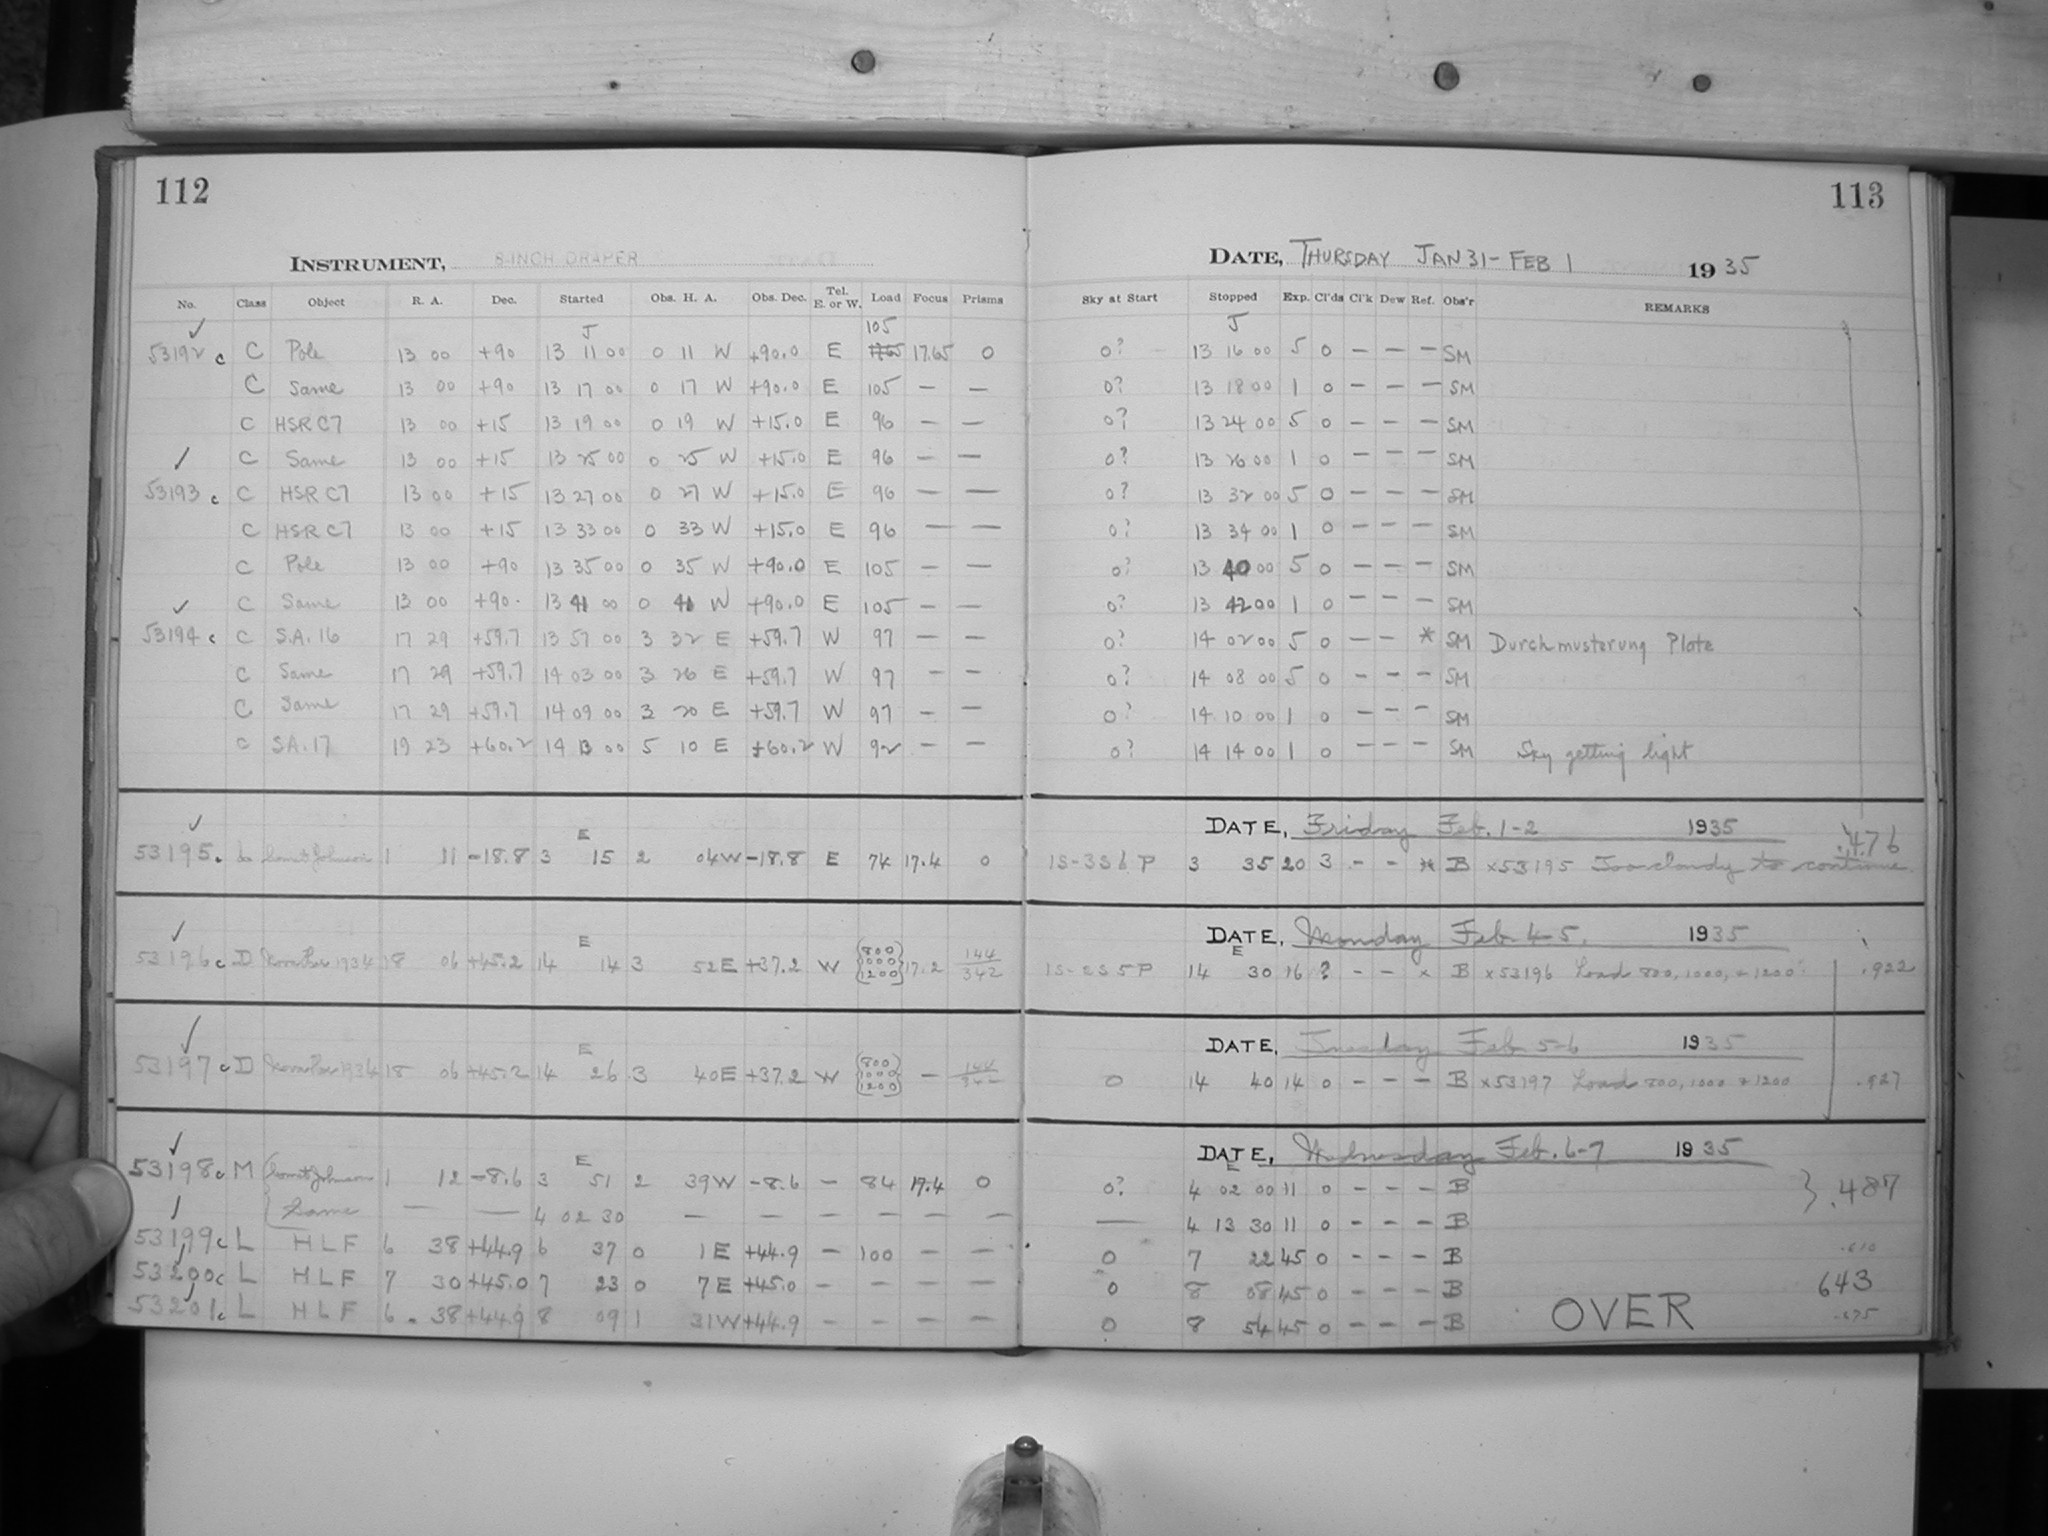 112
INSTRUMENT, 8-INCH DRAPER
No. Class Object R. A. Dec. Started Obs. H. A. Obs. Dec. Tel. E. or W. Load Focus Prisms
J 105
53192 c C Pole 13 00 +90 13 11 00 0 11 W +90.0 E 17.65 0
C Same 13 00 +90 13 17 00 0 17 W +90.0 E 105 — —
C HSR C7 13 00 +15 13 19 00 0 19 W +15.0 E 96 — —
C Same 13 00 +15 13 25 00 0 25 W +15.0 E 96 — —
53193 c C HSR C7 13 00 +15 13 27 00 0 27 W +15.0 E 96 — —
C HSR C7 13 00 +15 13 33 00 0 33 W +15.0 E 96 — —
C Pole 13 00 +90 13 35 00 0 35 W +90.0 E 105 — —
C Same 13 00 +90. 13 41 00 0 41 W +90.0 E 105 — —
53194 c C S.A. 16 17 29 +59.7 13 57 00 3 32 E +59.7 W 97 — —
C Same 17 29 +59.7 14 03 00 3 26 E +59.7 W 97 — —
C Same 17 29 +59.7 14 09 00 3 20 E +59.7 W 97 — —
C SA. 17 19 23 +60.2 14 13 00 5 10 E +60.2 W 92 — —
E
53195 Comet Johnson 1 11 -18.8 3 15 2 04 W -18.8 E 74 17.4 0
E
53196 c D Nova Her 1934 18 06 +45.2 14 14 3 52 E +37.2 W {800 1000 1200} 17.2 144/342
E
53197 c D Nova Her 1934 18 06 +45.2 14 26 3 40 E +37.2 W {800 1000 1200} — 144/342
E
53198 c M Comet Johnson 1 12 -8.6 3 51 2 39 W -8.6 — 84 17.4 0
Same — — 4 02 30 — — — — — —
53199 c L HLF 6 38 +44.9 6 37 0 1 E +44.9 — 100 — —
53200 c L HLF 7 30 +45.0 7 23 0 7 E +45.0 — — — —
53201 c L HLF 6 38 +44.9 8 09 1 31 W +44.9 — — — —
113
DATE, THURSDAY JAN 31 - FEB 1 1935
Sky at Start Stopped Exp. Cl'ds Cl'k Dew Ref. Obs'r REMARKS
J
0? 13 16 00 5 0 — — — SM
0? 13 18 00 1 0 — — — SM
0? 13 24 00 5 0 — — — SM
0? 13 26 00 1 0 — — — SM
0? 13 32 00 5 0 — — — SM
0? 13 34 00 1 0 — — — SM
0? 13 40 00 5 0 — — — SM
0? 13 42 00 1 0 — — — SM
0? 14 02 00 5 0 — — * SM Durchmusterung Plate
0? 14 08 00 5 0 — — — SM
0? 14 10 00 1 0 — — — SM
0? 14 14 00 1 0 — — — SM Sky getting light
DATE, Friday Feb. 1-2 1935
.476
1S-3S6P 3 35 20 3 - - * B ×53195 Too cloudy to continue
DATE, Monday Feb 4-5, 1935
E
1S-2S5P 14 30 16 ? - - × B ×53196 Load 800, 1000, + 1200 .922
DATE, Tuesday Feb 5-6 1935
0 14 40 14 0 - - - B ×53197 Load 800, 1000 + 1200 .927
DATE, Wednesday Feb. 6-7 1935
E
0? 4 02 00 11 0 - - - B } .487
— 4 13 30 11 0 - - - B
0 7 22 45 0 - - - B
0 8 08 45 0 - - - B 643
0 8 54 45 0 - - - B OVER